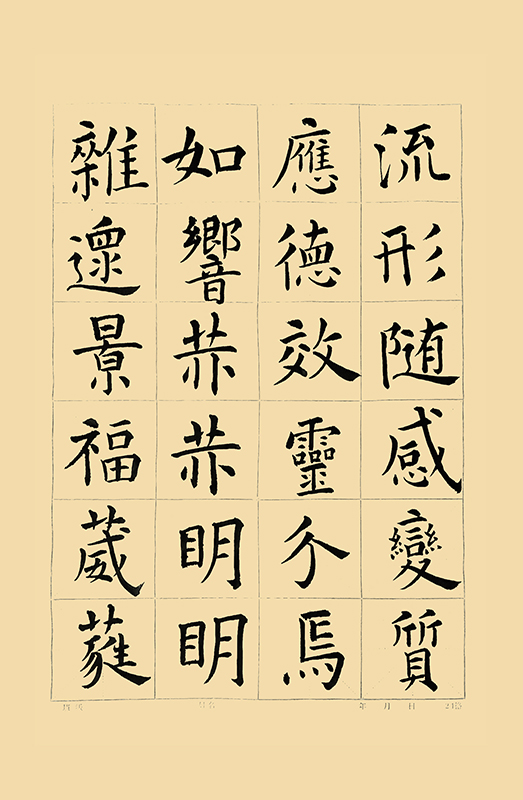 流形随感變質
應德效靈介焉
如響赫赫明明
雜遝景福葳蕤
年 月 日